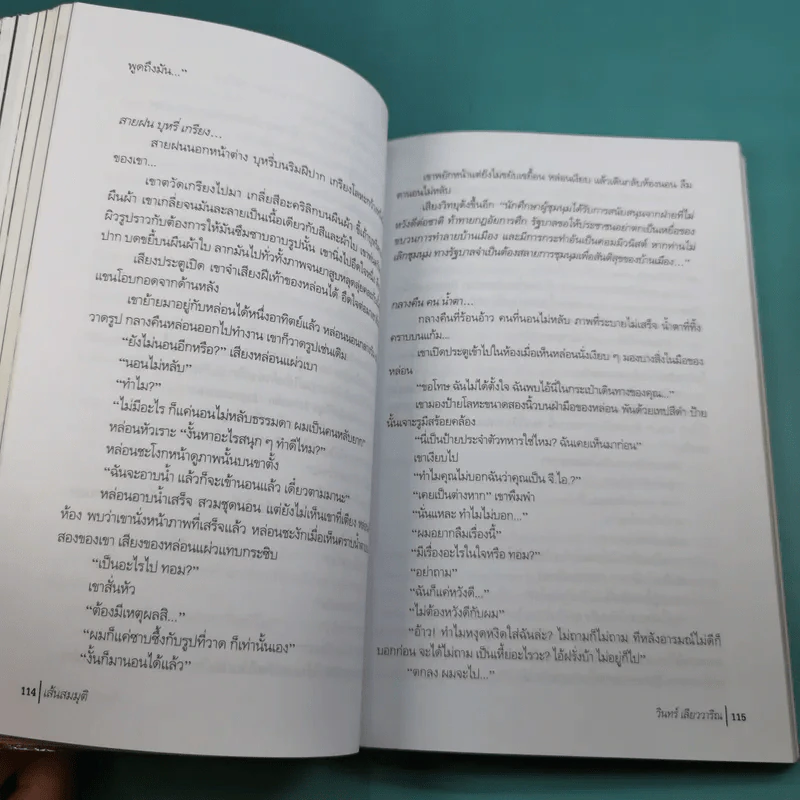 พูดถึงมัน...”
สายฝน บุหรี่ เกรียง...
สายฝนนอกหน้าต่าง บุหรี่บนริมฝีปาก เกรียงโลหะ
ของเขา...
เขาตวัดเกรียงไปมา เกลี่ยสีอะคริลิกบนผืนผ้า
ผืนผ้า เขาเกลี่ยจนมันละลายเป็นเนื้อเดียวกับสีและผ้าใบ
ผิวรูปราวกับต้องการให้มันซึมซาบอาบรูปนั้น เขานิ่งไปอึดใจหนึ่ง
ปาก บดขยี้บนผืนผ้าใบ ลากมันไปทั่วทั้งภาพจน
เสียงประตูเปิด เขาจำเสียงฝีเท้าของหล่อนได้ อึดใจต่อมา
แขนโอบกอดจากด้านหลัง
เขาย้ายมาอยู่กับหล่อนได้หนึ่งอาทิตย์แล้ว หล่อนนอนกลางวัน
วาดรูป กลางคืนหล่อนออกไปทำงาน เขาก็วาดรูปเช่นเดิม
“ยังไม่นอนอีกหรือ?” เสียงหล่อนแผ่วเบา
“นอนไม่หลับ”
“ทำไม?”
“ไม่มีอะไร ก็แค่นอนไม่หลับธรรมดา ผมเป็นคนหลับยาก”
หล่อนหัวเราะ “งั้นหาอะไรสนุก ๆ ทำดีไหม?”
หล่อนชะโงกหน้าดูภาพนั้นบนขาตั้ง
“ฉันจะอาบน้ำ แล้วก็จะเข้านอนแล้ว เดี๋ยวตามมานะ”
หล่อนอาบน้ำเสร็จ สวมชุดนอน แต่ยังไม่เห็นเขาที่เตียง
ห้อง พบว่าเขานั่งหน้าภาพที่เสร็จแล้ว หล่อนชะงักเมื่อเห็นคราบน้ำตา
สองของเขา เสียงของหล่อนแผ่วแทบกระซิบ
“เป็นอะไรไป ทอม?”
เขาสั่นหัว
“ต้องมีเหตุผลสิ...”
“ผมก็แค่ซาบซึ้งกับรูปที่วาด ก็เท่านั้นเอง”
“งั้นก็มานอนได้แล้ว”
114 เส้นสมมุติ
เขาพยักหน้าแต่ยังไม่ขยับเขยื้อน หล่อนเงียบ แล้วเดินกลับห้องนอน ลืม
ตานอนไม่หลับ
เสียงวิทยุดังขึ้นอีก “นักศึกษาผู้ชุมนุมได้รับการสนับสนุนจากฝ่ายที่ไม่
หวังดีต่อชาติ ท้าทายกฎอัยการศึก รัฐบาลขอให้ประชาชนอย่าตกเป็นเหยื่อของ
ขบวนการทำลายบ้านเมือง และมีการกระทำอันเป็นคอมมิวนิสต์ หากท่านไม่
เลิกชุมนุม ทางรัฐบาลจำเป็นต้องสลายการชุมนุมเพื่อสันติสุขของบ้านเมือง...”
กลางคืน คน น้ำตา...
กลางคืนที่ร้อนอ้าว คนที่นอนไม่หลับ ภาพที่ระบายไม่เสร็จ น้ำตาที่ทิ้ง
คราบบนแก้ม...
เขาเปิดประตูเข้าไปในห้องเมื่อเห็นหล่อนนั่งเงียบ ๆ มองบางสิ่งในมือของ
หล่อน
“ขอโทษ ฉันไม่ได้ตั้งใจ ฉันพบไอ้นี่ในกระเป๋าเดินทางของคุณ...”
เขามองป้ายโลหะขนาดสองนิ้วบนฝ่ามือของหล่อน พันด้วยเทปสีดำ ป้าย
นั้นเจาะรูมีสร้อยคล้อง
“นี่เป็นป้ายประจำตัวทหารใช่ไหม? ฉันเคยเห็นมาก่อน”
เขาเงียบไป
“ทำไมคุณไม่บอกฉันว่าคุณเป็น จี.ไอ.?”
“เคยเป็นต่างหาก” เขาพึมพำ
“นั่นแหละ ทำไมไม่บอก...”
“ผมอยากลืมเรื่องนี้”
“มีเรื่องอะไรในใจหรือ ทอม?”
“อย่าถาม”
“ฉันก็แค่หวังดี...”
“ไม่ต้องหวังดีกับผม”
“อ้าว! ทำไมหงุดหงิดใส่ฉันล่ะ? ไม่ถามก็ไม่ถาม ทีหลังอารมณ์ไม่ดีก็
บอกก่อน จะได้ไม่ถาม เป็นเหี้ยอะไรวะ? ไอ้ฝรั่งบ้า ไม่อยู่ก็ไป”
“ตกลง ผมจะไป...”
วินทร์ เลียววาริณ 115